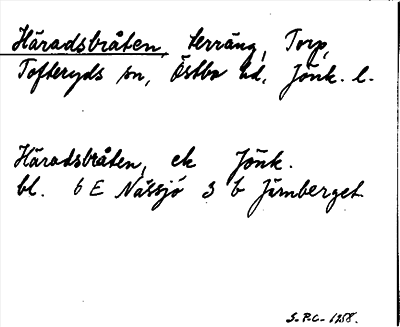 Häradsbråten, terräng, Torp,
Tofteryds sn, Östbo hd, Jönk. l.
Häradsbråten, ek Jönk.
bl. 6 E Nässjö 3 b Järnberget
S.P.C. 1958.